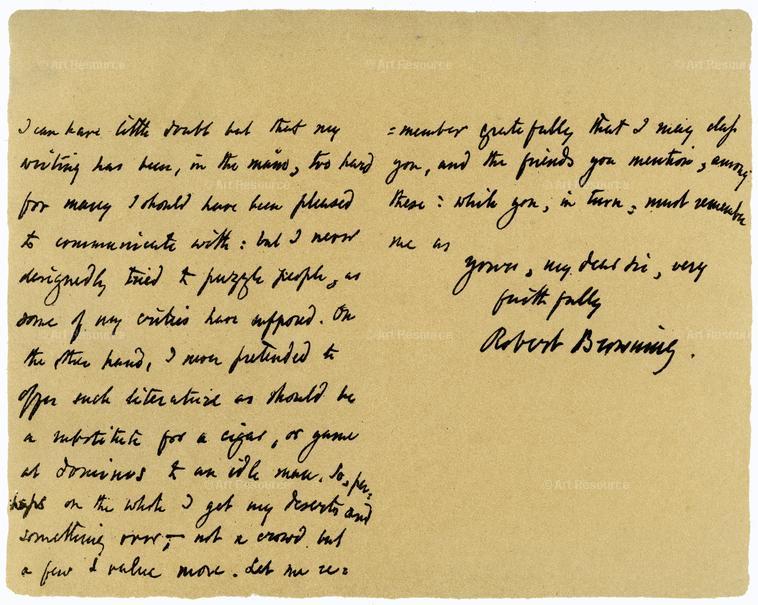 I can have little doubt but that my
writing has been, in the main, too hard
for many I should have been pleased
to communicate with: but I never
designedly tried to puzzle people, as
some of my critics have supposed. On
the other hand, I never pretended to
offer such literature as should be
a substitute for a cigar, or game
at dominos to an idle man. So, per-
haps on the whole I get my deserts and
something over — not a crowd but
a few I value more. Let me re=
=member gratefully that I may class
you, and the friends you mention, among
these: while you, in turn, must remember
me as
yours, my dear sir, very
faithfully
Robert Browning.
© Art Resource
© Art Resource
© Art Resource
© Art Resource
© Art Resource
© Art Resource
© Art Resource
© Art Resource
© Art Resource